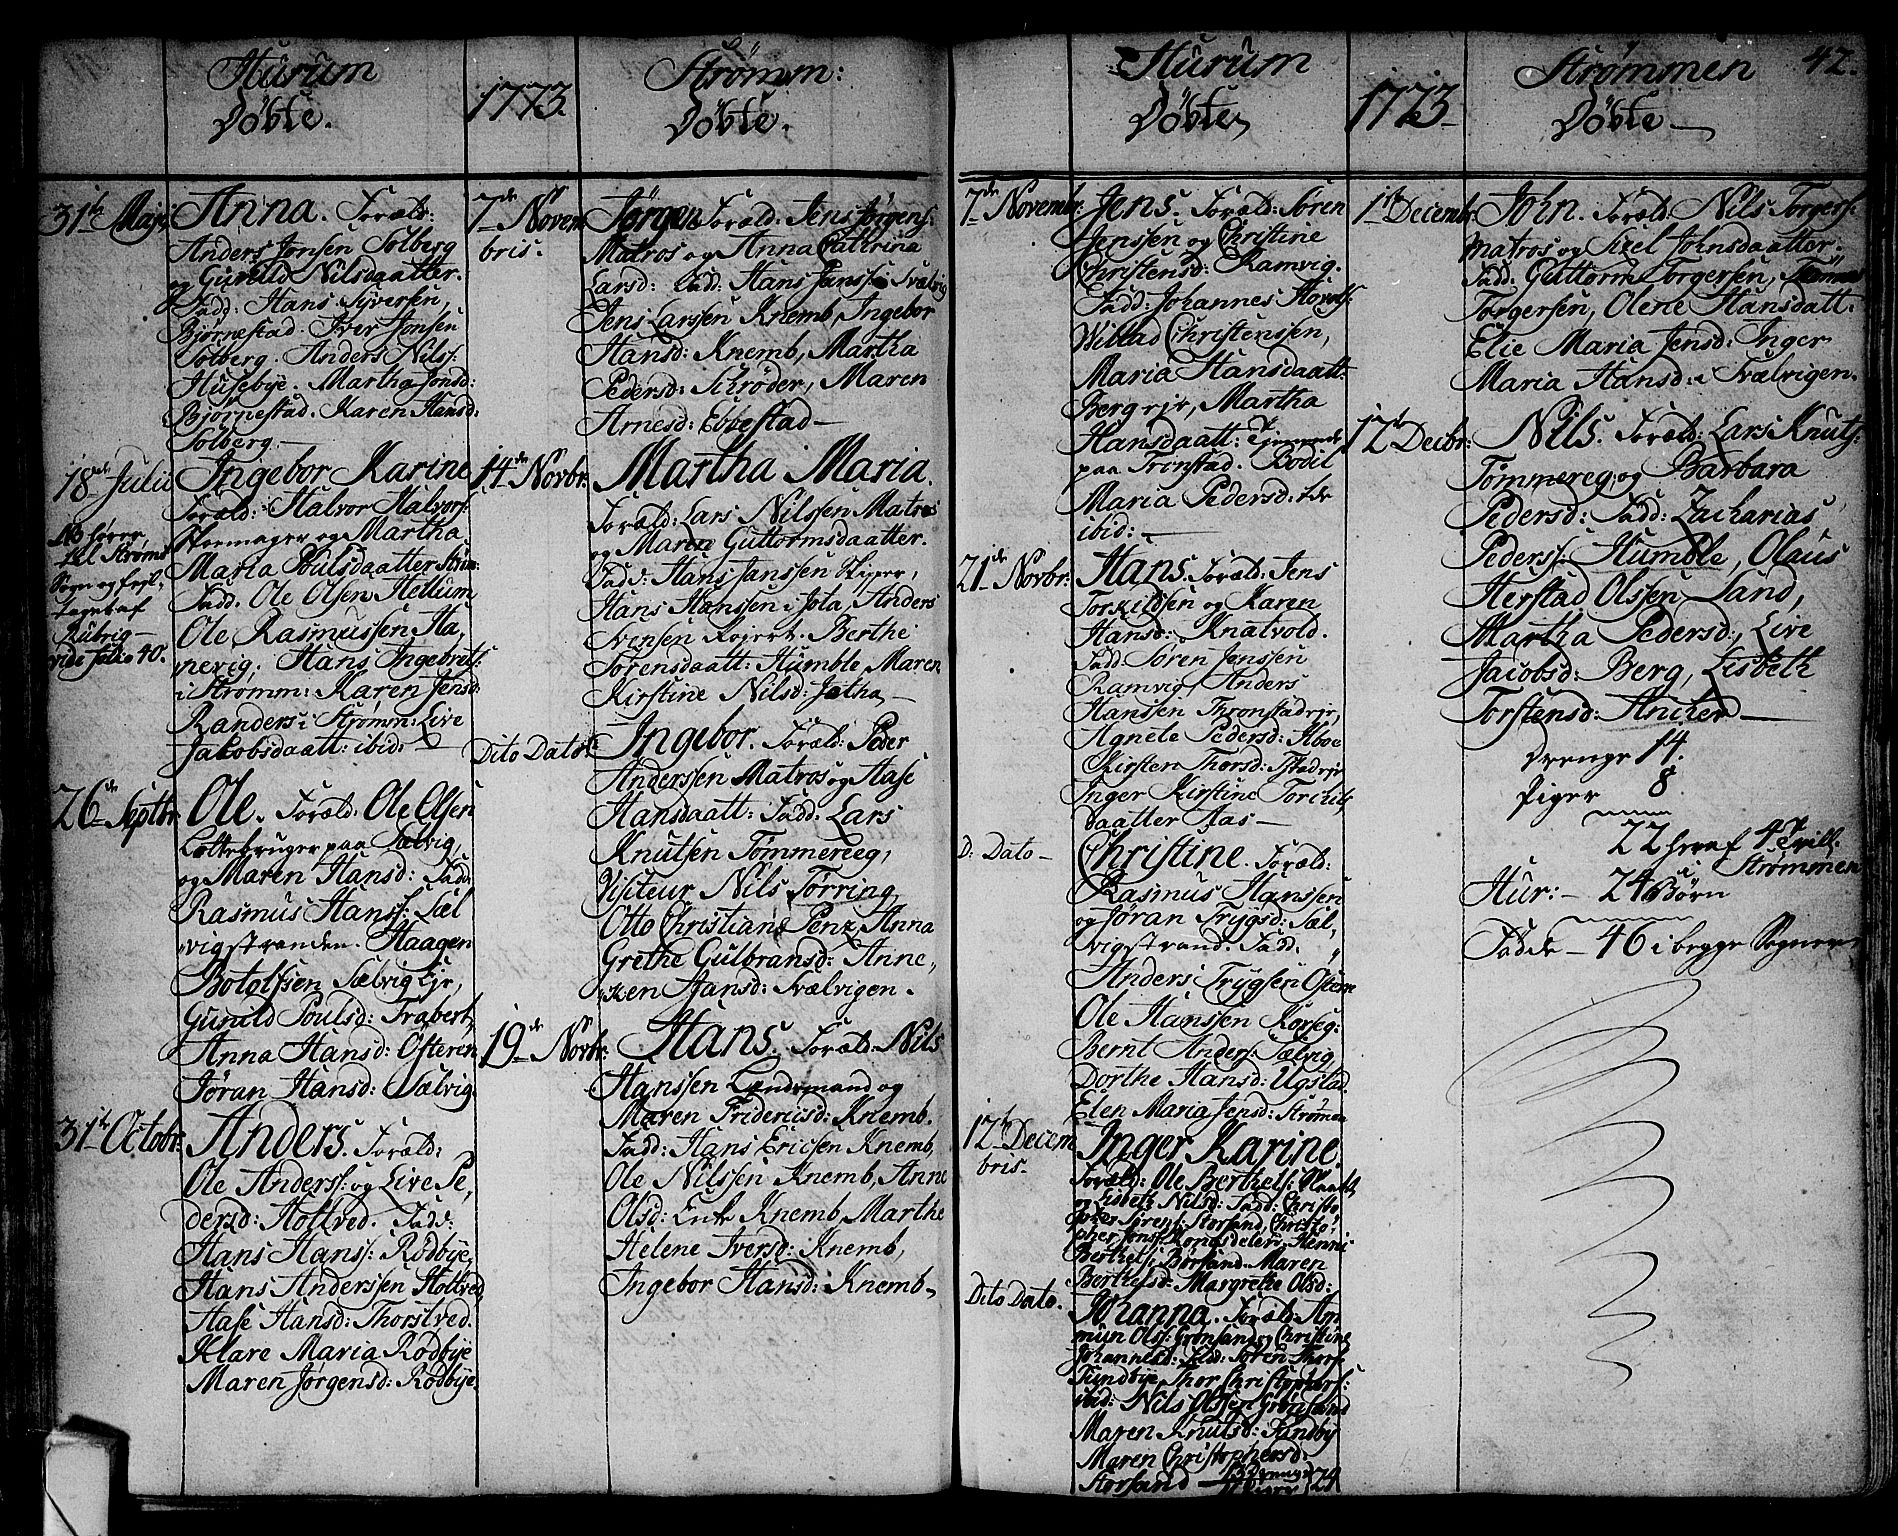 Hurum
Döbte.
1773.
Strømm:
Döbte.
31te Maji
Anna. Foræld:
Anders Jonsen Solberg
og Gunild Nilsdaatter.
Fadd: Hans Syversen,
Bjørnestad. Iver Jonsen
Solberg. Anders Nilss:
Husebye. Martha Jonsd:
Bjørnestad. Karen Hansd:
Solberg.—
18de Julii
Ingebor Karine
Foræld: Halvor Halvors:
Skomager og Martha
Maria Poulsdaatter Strøm:
Fadd. Ole Olsen Hellum
Ole Rasmussen Ha,
nevig, Hans Ingebrets:
i Strømm: Karen Jensd:
Randers i Strømn: Live
Jakobsdaatt: ibid:—
hører
til Strøms
Sogn og
vide folio 40.
26de Septbr:
Ole. Foræld: Ole Olsen
Lottebruger paa Sælvig,
og Maren Hansd: Fadd:
Rasmus Hanss: Sæl
vigstranden. Haagen
Botolfsen Sælvig Ejr,
Gunild Poulsd: Trabert,
Anna Hansd: Ofteren
Jøran Hansd: Sælvig.
31te Octobr:
Anders. Foræld:
Ole Anderss: og Live Pe,
dersd: Hottved. Fadd:
Hans Hanss: Rødbye,
Hans Anderssen Hottved,
Aase Hansd: Thorstved.
Klare Maria Rødbye
Maren Jørgensd: Rødbye.
7de Novem
bris.
Jørgen Foræld: Jens Jørgens:
Matros og Anna Cathrina
Larsd: Fadd: Hans Janss: Svælvig
Jens Larssen Knemb, Ingebor
Hansd: Knemb, Martha
Pedersd: Schrøder, Maren
Arnesd: Ebbestad—
14de Novbr:
Martha Maria.
Foræld: Lars Nilssen Matros
og Maren Guttormsdaatter.
Fadd: Hans Janssen Skiper,
Hans Hanssen i Jola, Anders
Svensen Rojert. Berthe
Sørensdaatt: Humble Maren
Kirstine Nilsd: Jotha,—
Dito Dato:
Ingebor. Foræld: Peder
Anderssen Matros og Aase
Hansdaatt: Fadd: Lars
Knutsen Tømmereeg,
Visiteur Nils Torring
Otto Christians Penz, Anna
Grethe Gulbransd: Anne,
ken Hansd: Svælvigen.
19de Novbr:
Hans. Foræld: Nils
Hanssen Lendsmand og
Maren Fridericsd: Knemb.
Fadd: Hans Ericsen Knemb,
Ole Nilssen Knemb, Anne
Olsd: Enke Knemb, Marthe
Helene Iversd: Knemb,
Ingebor Hansd: Knemb.
Hurum
Döbte
1773
Strømmen
Döbte—
42.
7de Novembr:
Jens. Foræld: Søren
Jenssen og Christine
Christensd: Ramvig.
Fadd: Johannes Hovolss:
Willad Christenssen,
Maria Hansdaatt:
Berg ejr, Martha
Hansdaatt: Tjenende
paa Tronstad. Bodil
Maria Pedersd:
ibid:—
21de Novbr:
Hans. Foræld: Jens
Torkildsen og Karen
Hansd: Knatvold.
Fadd: Søren Jenssen
Ramvig, Anders
Hanssen Thronstad ejr,
Agnete Pedersd: Aboe
Kirsten Thorsd: Tstad ejr
Inger Kirstine Torkils
daatter Aas—
D: Dato—
Christine. Foræld:
Rasmus Hanssen
og Jøran Trygsd: Sæl,
vigstrand. Fadd:
Anders Trygsen Oftern
Ole Hanssen Korseg:
Bernt Anders: Sælvig,
Dorthe Hansd: Ugstad
Elen Maria Jensd: Strømen
12te Decem
bris.
Inger Karine.
Foræld: Ole Berthels:
og Lisbeth Nilsd: Fadd: Christo,
Storsand, Christo
pher Jons: Kongsdelen, Henni
Berthels: Børsand. Maren
Berthelsd: Margrethe Olsd:
Dito Dato.
Johanna. Foræld: Am
mun Olss: Grønsand og Christine
Johannesd: Fadd: Søren Thors:
Tundbye, Thor Christophers:
ibid: Nils Olsen Grønsand
Maren Knutsd: Sandby
Maren Christophersd:
Storsand—
1te Decembr:
John. Foræld: Nils Torgerss:
Matros og Sizel Johnsdaatter.
Fadd: Guttorm Torgersen,
Torgersen, Olene Hansdatt:
Elie Maria Jensd: Inger
Maria Hansd: i Svælvigen.
12te Decbr:
Nils. Foræld: Lars Knuts:
Tømmereg og Barbara
Pedersd: Fadd: Zacharias
Pederss: Humble, Olaus
Herstad Olssen Sand,
Martha Pedersd:, Live
Jacobsd: Berg, Lisbeth
Torstensd: Ancher—
Drenge 14.
Piger 8
22 heraf 4 Tvill.
i Strømmen
Hur:— 24 Børn
46 i begge Sogner